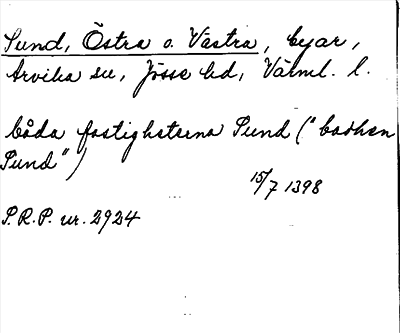 Sund, Östra o. Västra, byar,
Arvika sn, Jösse hd, Värml. l.
båda fastigheterna Sund ("badhen
Sund")
15/7 1398
S.R.P. nr. 2924